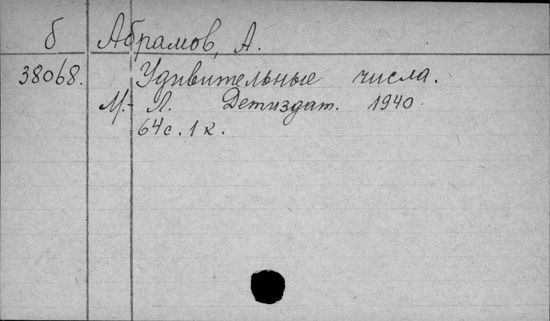 б Абрамов, А.
38068. Удивительные числа.
М.-Л. Детиздат. 1940.
64 с. 1 к.